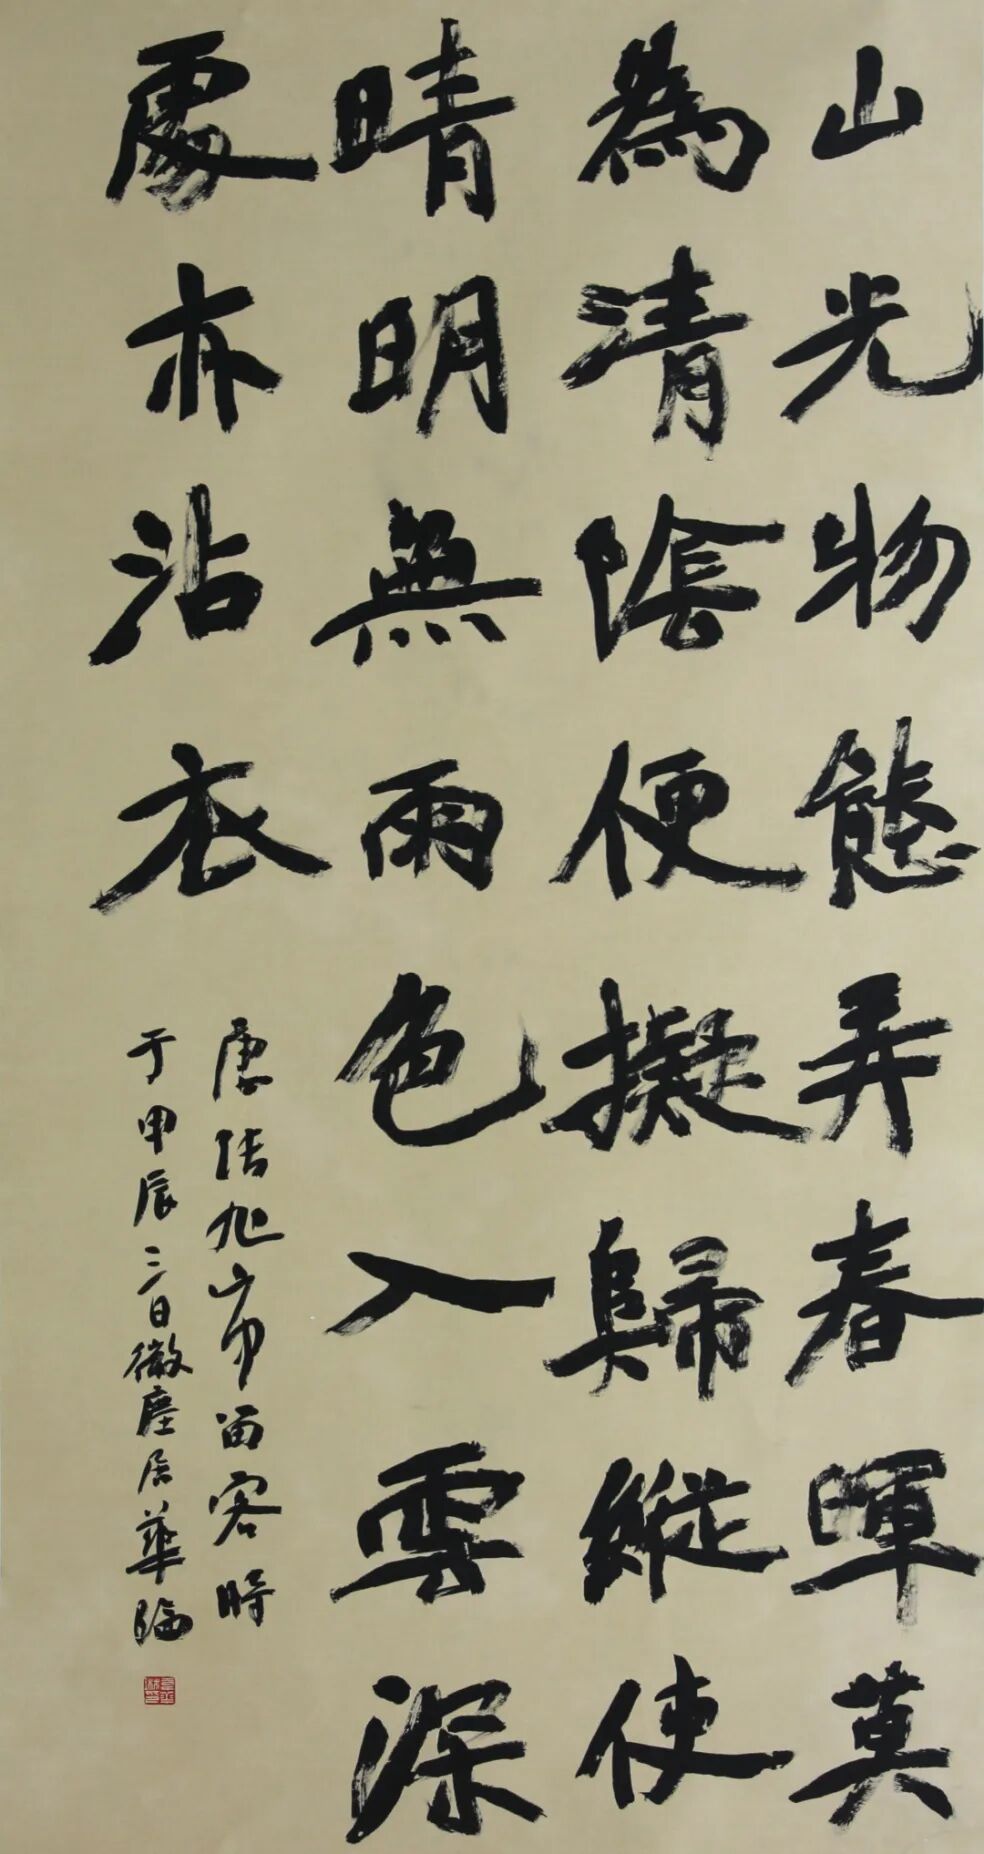 山光物態弄春暉莫
為清陰便擬歸縱使
晴明無雨色入雲深
處亦沾衣
唐張旭山中留客時
于甲辰三日微塵居華臨